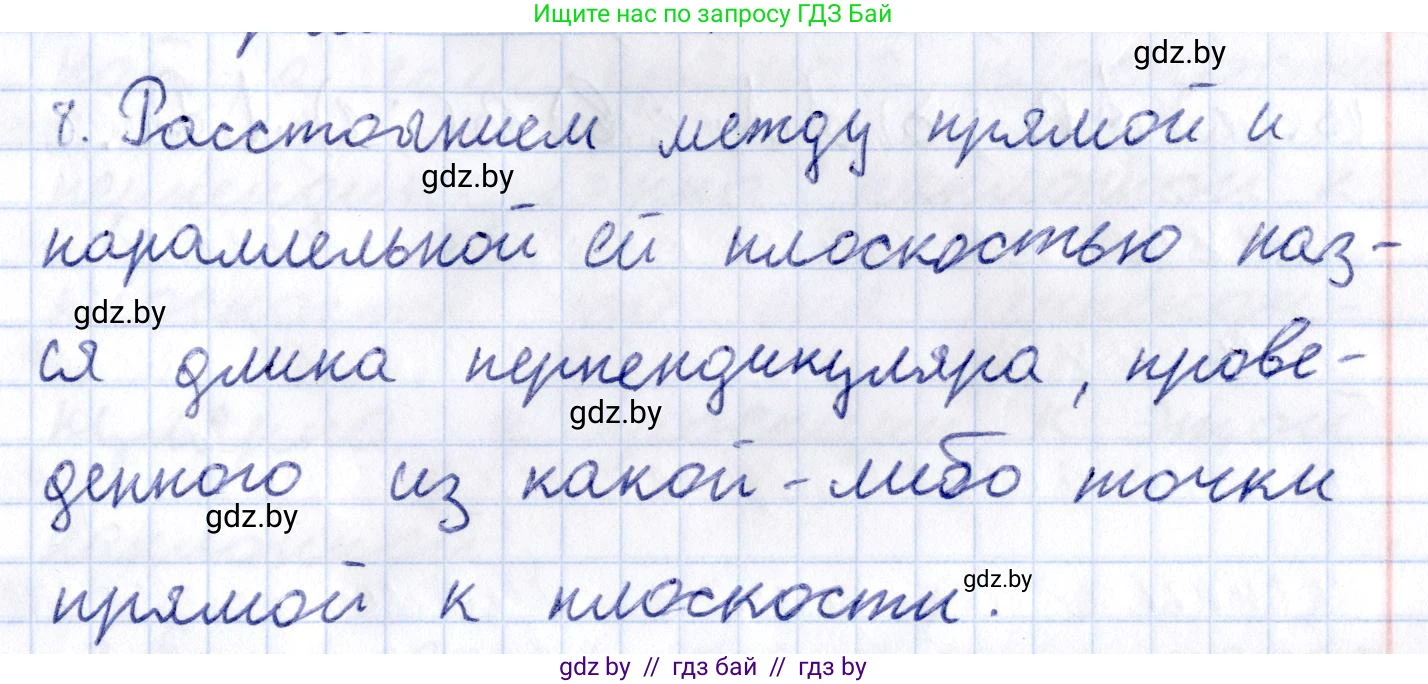 Ищите нас по запросу ГДЗ Бай
gdz.by
8. Расстоянием между прямой и
gdz.by
параллельной ей плоскостью наз-
gdz.by
ся длина перпендикуляра, прове-
gdz.by
денного из какой-либо точки
gdz.by
прямой к плоскости.
gdz.by
gdz by // гдз бай // гдз by